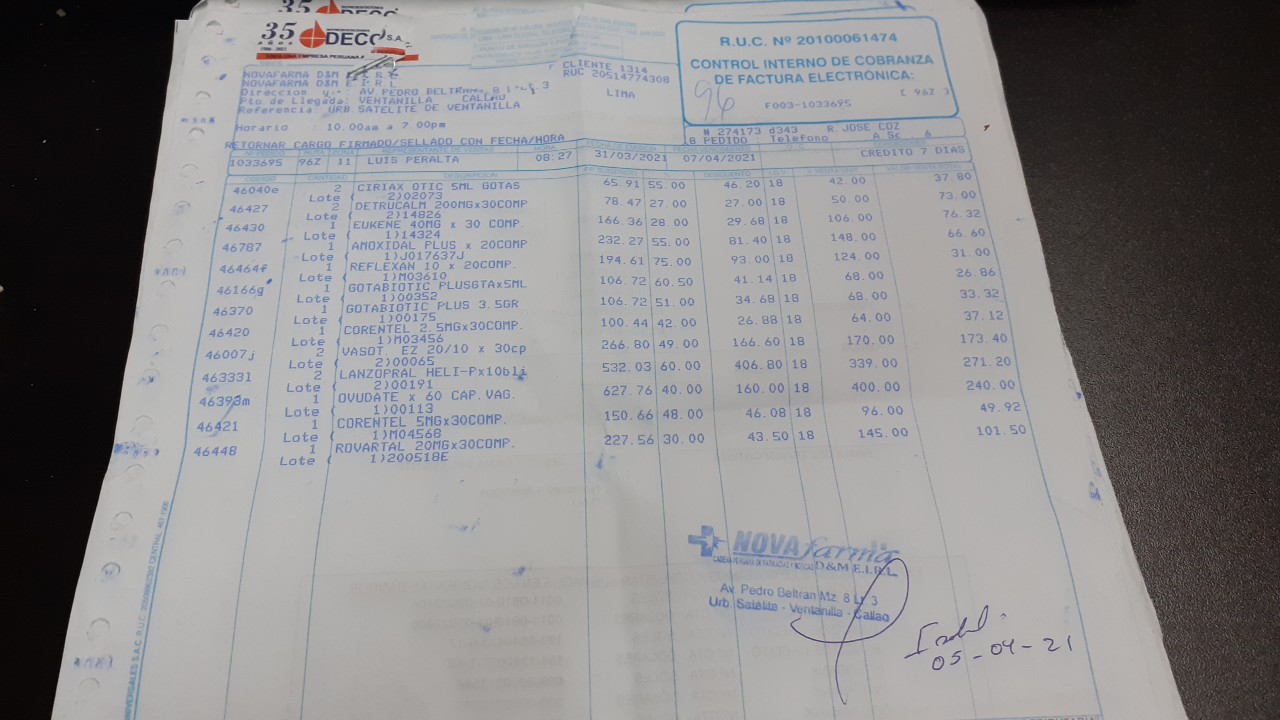 35 AÑOS DECO S.A.
R.U.C. Nº 20100061474
CONTROL INTERNO DE COBRANZA
DE FACTURA ELECTRÓNICA:
96
F003-1033695 ( 96Z )
NOVAFARMA D&M E.I.R.L
NOVAFARMA D&M E.I.R.L
CLIENTE 1314
RUC 20514774308
Direccion AV PEDRO BELTRAN 3
LIMA
Pto de Llegada: VENTANILLA CALLAO
Referencia URB SATELITE DE VENTANILLA
Horario 10.00am a 7.00pm
# 274173 d343 R. JOSE COZ
B PEDIDO Telefono A 5c . 6
RETORNAR CARGO FIRMADO/SELLADO CON FECHA/HORA
1033695 96Z 11 LUIS PERALTA 08:27 31/03/2021 07/04/2021 CREDITO 7 DIAS
CODIGO CANTIDAD DESCRIPCION DESCUENTO
46040e 2 CIRIAX OTIC 5ML GOTAS 65.91 55.00 46.20 18 42.00 37.80
Lote ( 2)02073
46427 2 DETRUCALM 200MGx30COMP 78.47 27.00 27.00 18 50.00 73.00
Lote ( 2)14826
46430 1 EUKENE 40MG x 30 COMP 166.36 28.00 29.68 18 106.00 76.32
Lote ( 1)14324
46787 1 ANOXIDAL PLUS x 20COMP 232.27 55.00 81.40 18 148.00 66.60
Lote ( 1)J017637J
46464f 1 REFLEXAN 10 x 20COMP. 194.61 75.00 93.00 18 124.00 31.00
Lote ( 1)M03610
46166g 1 GOTABIOTIC PLUSGTAx5ML 106.72 60.50 41.14 18 68.00 26.86
Lote ( 1)00352
46370 1 GOTABIOTIC PLUS 3.5GR 106.72 51.00 34.68 18 68.00 33.32
Lote ( 1)00175
46420 1 CORENTEL 2.5MGx30COMP. 100.44 42.00 26.88 18 64.00 37.12
Lote ( 1)M03456
46007j 2 VASOT. EZ 20/10 x 30cp 266.80 49.00 166.60 18 170.00 173.40
Lote ( 2)00065
463331 2 LANZOPRAL HELI-Px10bli 532.03 60.00 406.80 18 339.00 271.20
Lote ( 2)00191
46393m 1 OVUDATE x 60 CAP.VAG. 627.76 40.00 160.00 18 400.00 240.00
Lote ( 1)00113
46421 1 CORENTEL 5MGx30COMP. 150.66 48.00 46.08 18 96.00 49.92
Lote ( 1)M04568
46448 1 ROVARTAL 20MGx30COMP. 227.56 30.00 43.50 18 145.00 101.50
Lote ( 1)200518E
NOVAfarma
CADENA PERUANA DE FARMACIAS Y BOTICAS D&M E.I.R.L.
Av. Pedro Beltran Mz. 8 Lt. 3
Urb. Satélite - Ventanilla - Callao
05-04-21